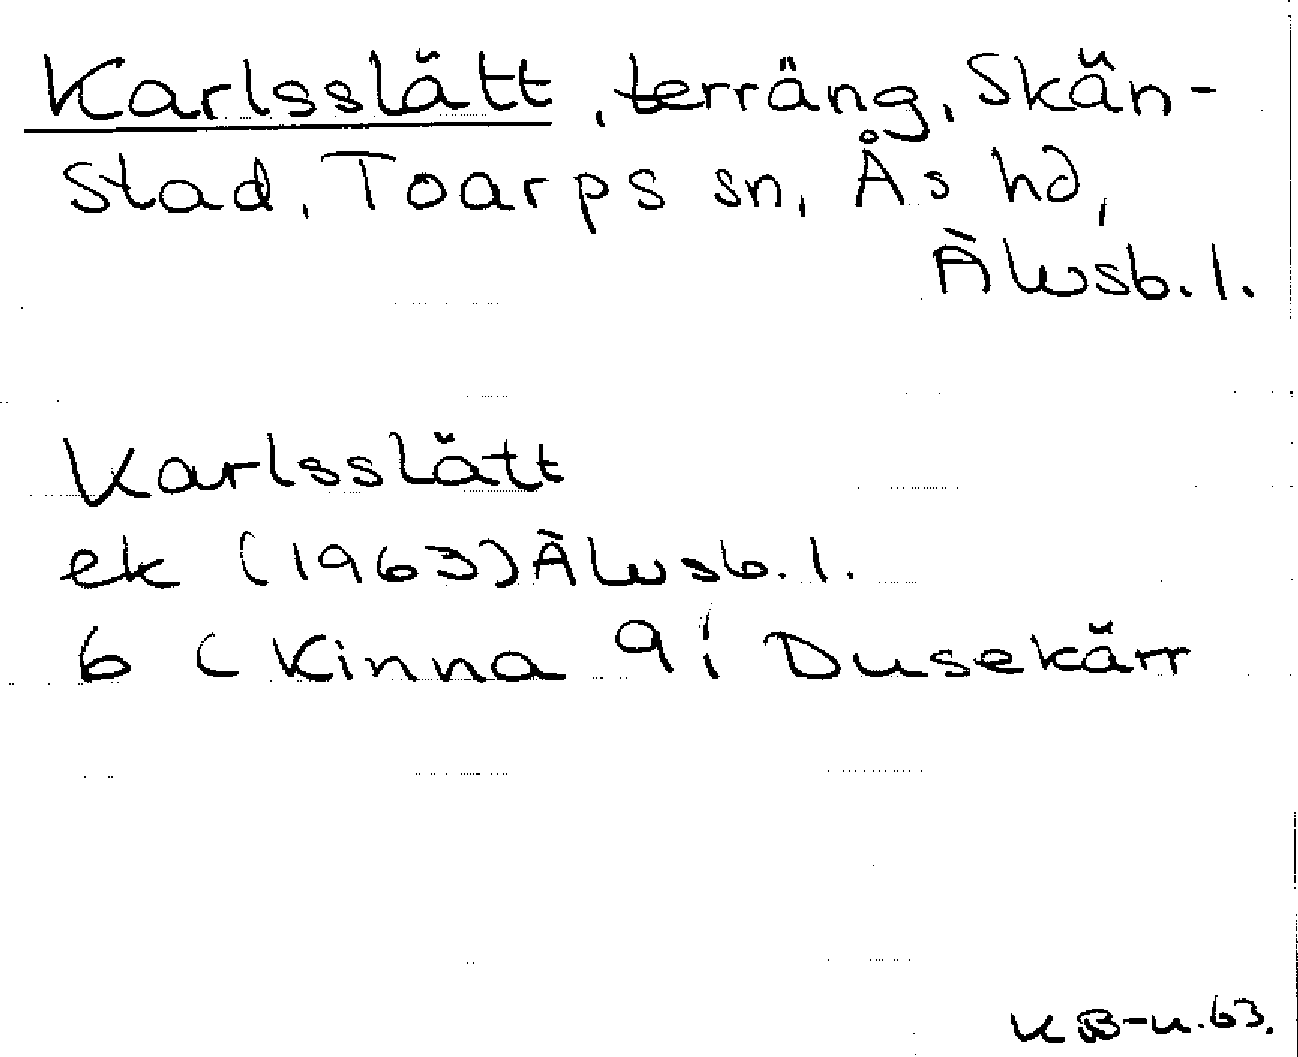 Karlsslätt, terräng, Skän-
stad, Toarps sn, Ås hd,
Älvsb. l.
Karlsslätt
ek (1963) Älvsb. l.
6 ( Kinna 9 ; Dusekärr
KB-n. 63.